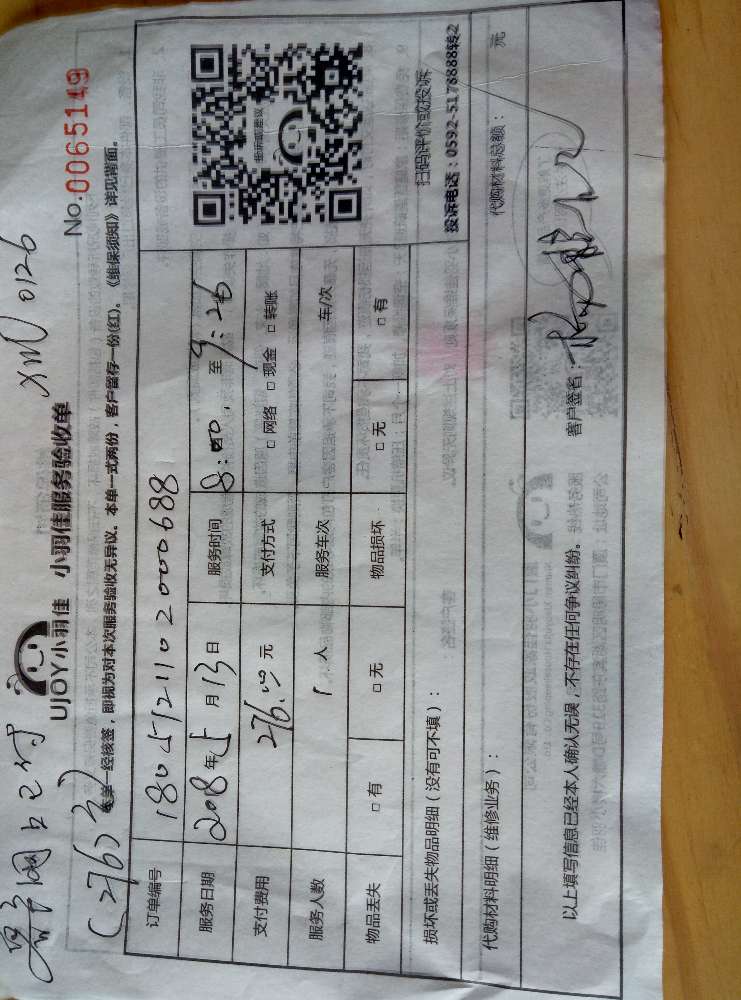 网上已付
(276元)
XMU 0126
UJOY小羽佳 小羽佳服务验收单
No.0065149
本单一经核签，即视为对本次服务验收无异议。本单一式两份，客户留存一份(红)。《维保须知》详见背面。
订单编号 1805121102000688
服务日期 2018年5月13日 服务时间 8:00, 至 9:26
支付费用 276.00元 支付方式 □网络 □现金 □转账
服务人数 1人 服务车次 车/次
物品丢失 □有 □无 物品损坏 □无 □有
投诉或建议
扫码评价或投诉
投诉电话：0592-5178888转2
损坏或丢失物品明细（没有可不填）：
代购材料明细（维修业务）： 代购材料总额： 元
以上填写信息已经本人确认无误，不存在任何争议纠纷。 客户签名：